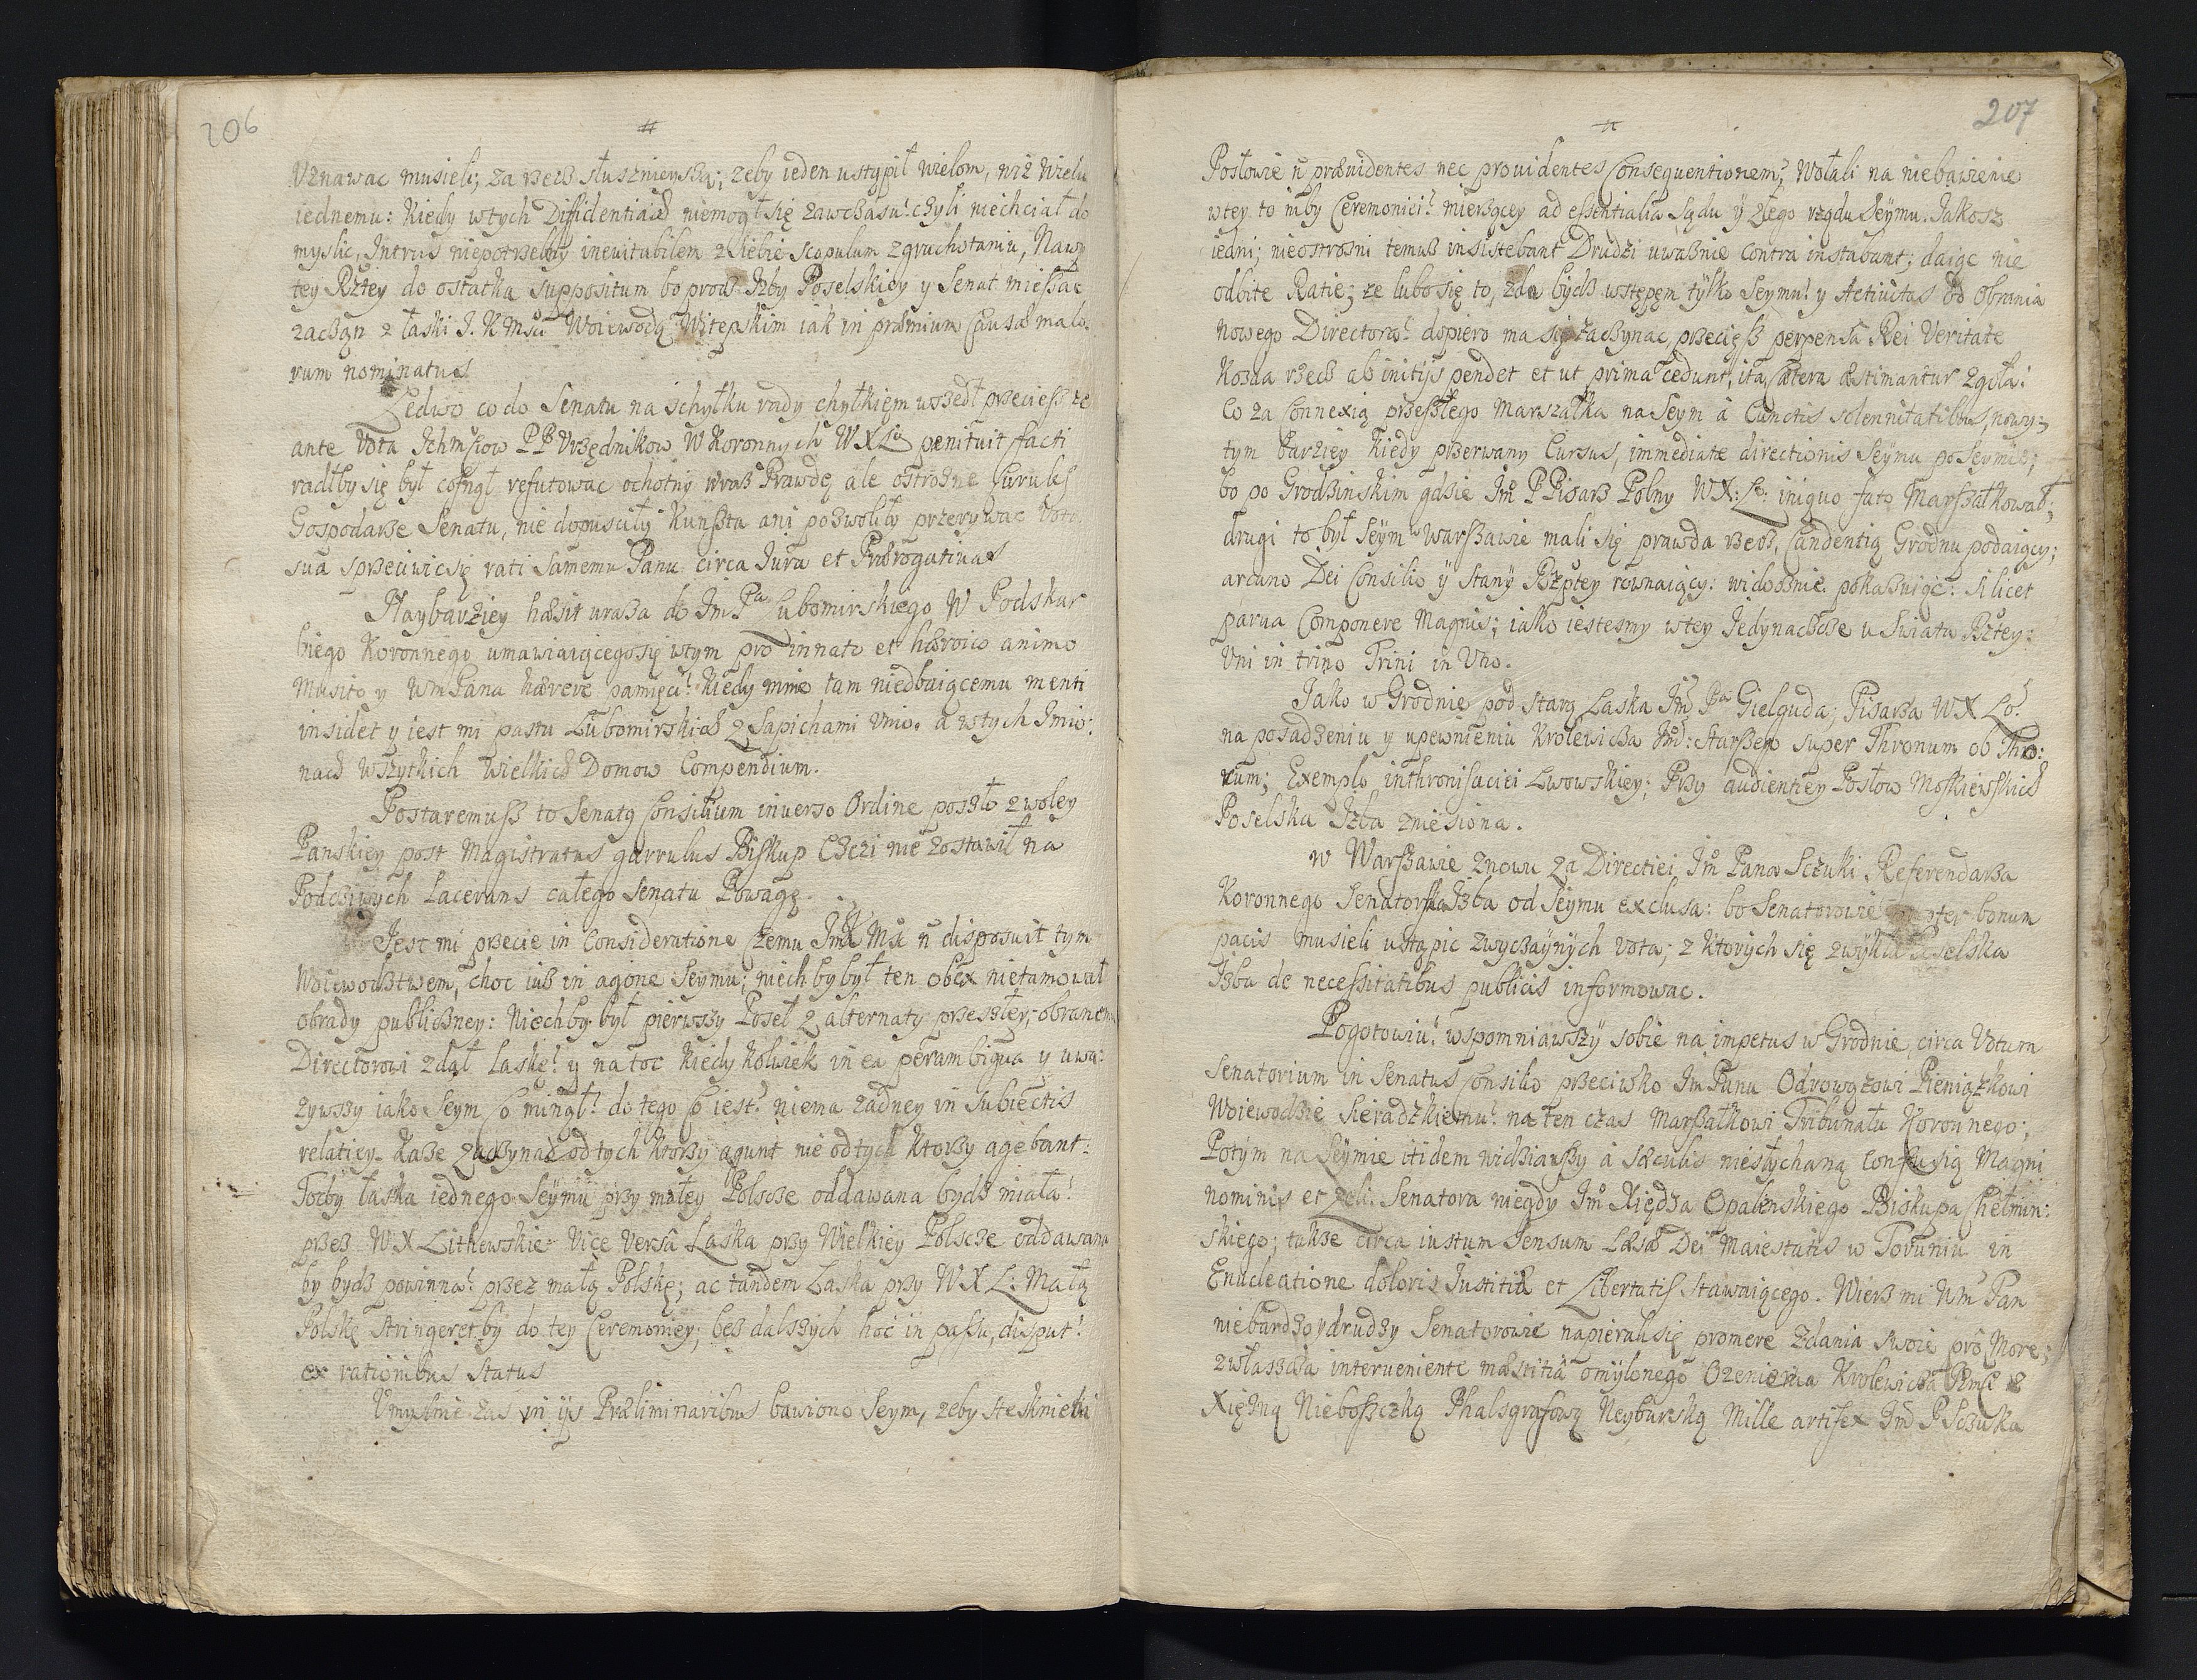 206
#
Uznawac musieli; za rzecz słusznieyszą; zeby ieden ustąpił wielom, niz wielu
iednemu: Kiedy wtych Diffidentiach niemogł się zawczasu? czyli niechciał do
myslic, Intrus niepotrzebny ineuitabilem z siebie scopulum zgruchotaniu, Nawy
tey Rztey do ostatka suppositum bo procz Izby Poselskiey y Senat mieszac
zaczął z łaski J. K Msci Woiewodą Witepskim iak in præmium causæ malo
rum nominatus
Ledwo co do Senatu na schyłku rady chyłkiem wszedł przeciesz ze
ante Vota Ichmsciow PP Urzędnikow W Koronnych WXLo pœnituit facti
radłby się był cofnął refutowac ochotny wraz Prawdę ale ostrozne Curules
Gospodarze Senatu, nie dopusciły Kunsztu ani pozwoliły przerywac Vota
sua sprzeciwic się rati Samemu Panu circa Jura et Prærogatiuas
Naybarziey hæsit uraza do Jm Pa Lubomirskiego W Podskar
biego Koronnego umawiaiącego się wtym pro innato et hæroico animo
Musi to y WmPana hærere pamięci? kiedy mnie tam niedbaiącemu menti
insidet y iest mi pastu Lubomirskich z Sapiehami Unio. a wtych Imio:
nach wszytkich wielkich Domow Compendium.
Postaremusz to Senatq Consilium inuerso Ordine poszło z woley
Panskiey post Magistratus garrulus Biskup Czczi nie zostawił na
Podcziwych lacerans całego Senatu Powagę.
Jest mi przecie in Consideratione czemu JmKMsc ñ disposuit tym
Woiewodztwem, choc iuz in agone Seymu; niech by był ten obex nietamował
obrady publiczney: Niechby był pierwszy Poseł z alternaty przeszłey, obranem
Directorowi zdał Laskę? y na toc kiedy kolwiek in ea perambigua y uwa:
zywszy iako Seym co minął? do tego co iest? niema zadney in Subiectis
relatiey. Każe zaczynac od tych ktorzy agunt nie od tych ktorzy agebant:
Tocby laska iednego Seymu przy małey Polscze oddawana bydz miała?
przez WX Lithewskie Vice Versâ Laska przy Wielkiey Polscze oddawana
by bydz powinna? przez małą Polskę; ac tandem Laska przy WX L: Małą
Polskę stringeret by do tey Ceremoniey; bez dalszych hoc in passu, disput?
ex rationibus Status
Umyslnie zas in ijs Præliminaribus bawiono Seym, zeby stesknieni
207
#
Posłowie ñ præuidentes nec prouidentes Consequentionem, Wołali na niebawienie
wtey to niby Ceremoniei? mierzącey ad essentialia Sądu y złego rządu Seymu. Jakosz
iedni; nieostrozni temuz insistebant Drudzi uwaznie contra instabant; daiąc nie
odbite Ratie; ze lubo się to, zda bydz wstępem tylko Seymu? y Actiuitas od obrania
nowego Directora? dopiero ma się zaczynac, przeciesz perpensa Rei Veritate
Kozda rzecz ab initijs pendet et ut prima cedunt, ita, cætera æstimantur zgoła?
Co za Connexią przeszłego Marszałka na Seym à Cunctis solennitatibus, nowy;
tym barziey kiedy przerwany Cursus, immediate directionis Seymu po Seymie;
bo po Grodzinskim gdzie Jm P Pisarz Polny WX: Lo: iniquo fato Marszałkował;
drugi to był Seym Warszawie mali się prawda rzecz, Candentią Grodnu podaiący;
arcano Dei Consilio y stany Rzptey rownaiący: widocznie pokazuiąc: Si licet
parua Componere Magnis; iako iestesmy wtey Jedynaczcze u Swiata Rztey:
Uni in trino Trini in Uno.
Jako w Grodnie pod starą Laską Jm Pa Gielguda; Pisarza WX Lo?
na posadzeniu y upewnieniu Krolewicza Jm: Starszego super Thronum ob Tho:
rum; Exemplo inthronisaciei Lwowskiey; Przy audientiey Posłow Moskiewskich
Poselska Izba zniesiona.
W Warszawie znowu za Directiei Jm Pana Sczuki Referendarza
Koronnego Senatorska Izba od Seymu exclusa: bo Senatorowie propter bonum
pacis musieli ustąpic zwyczaynych Vota; z ktorych się zwykła Poselska
Izba de necessitatibus publicis informowac.
Pogotowiu? wspomniawszy sobie na impetus w Grodnie, circa Votum
Senatorium in Senatus Consilio przeciwko Jm Panu Odrowązowi Pieniązkowi
Woiewodzie Sieradzkiemu? na ten czas Marszałkowi Tribunału Koronnego;
Potym na Seymie itidem widziawszy à Sæculis niesłychaną Confusią Magni
nominis et zeli Senatora niegdy Jm Xiędza Opalenskiego Biskupa Chełmin:
skiego; takze circa iustum sensum Læsæ Dei Maiestatis w Toruniu in
Enucleatione doloris Justitiæ et Libertatis stawaiącego. Wierz mi Wm Pan
niebardzo y drudzy Senatorowie napierali się promere zdania swoie pro More;
zwłaszcza interueniente mæstitiâ omylonego Ozenienia Krolewicza Jmsc z
Xięzną Nieboszczką Phalsgrafową Neyburską Mille artifex Jmc P Sczuka